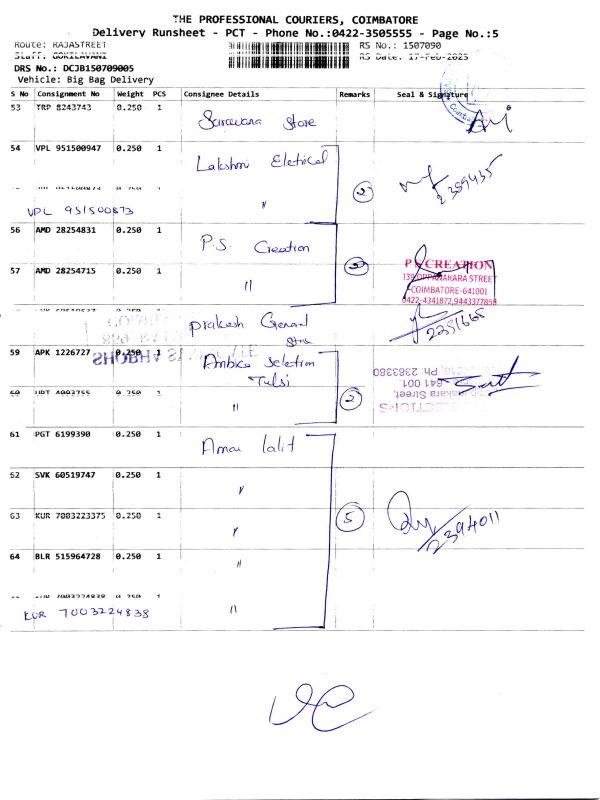 THE PROFESSIONAL COURIERS, COIMBATORE
Delivery Runsheet - PCT - Phone No.:0422-3505555 - Page No.:5
Route: RAJASTREET
RS No.: 1507090
Staff: GOKILAVANI
RS Date: 17-Feb-2025
DRS No.: DCJB150709005
Vehicle: Big Bag Delivery
S No Consignment No Weight PCS Consignee Details Remarks Seal & Signature
53 TRP 8243743 0.250 1 Saravana Store
54 VPL 951500947 0.250 1 Lakshmi Eletrical
2 2359435
VPL 951500873 "
56 AMD 28254831 0.250 1 P.S. Creation
57 AMD 28254715 0.250 1 "
P S CREATION
139, OPPANAKARA STREET
COIMBATORE-641001
0422-4341872,9443377858
Prakash General
Store
2251665
59 APK 1226727 0.250 1 Ambica Selection
Tulsi
60 URT 4003755 0.250 1 " 2
Ph. 2383380
641 001.
akara Street,
ECTIONS
61 PGT 6199390 0.250 1 Amar lalit
62 SVK 60519747 0.250 1 "
63 KUR 7003223375 0.250 1 " 5 2394011
64 BLR 515964728 0.250 1 "
KUR 7003224838 0.250 1
KUR 7003224838 "